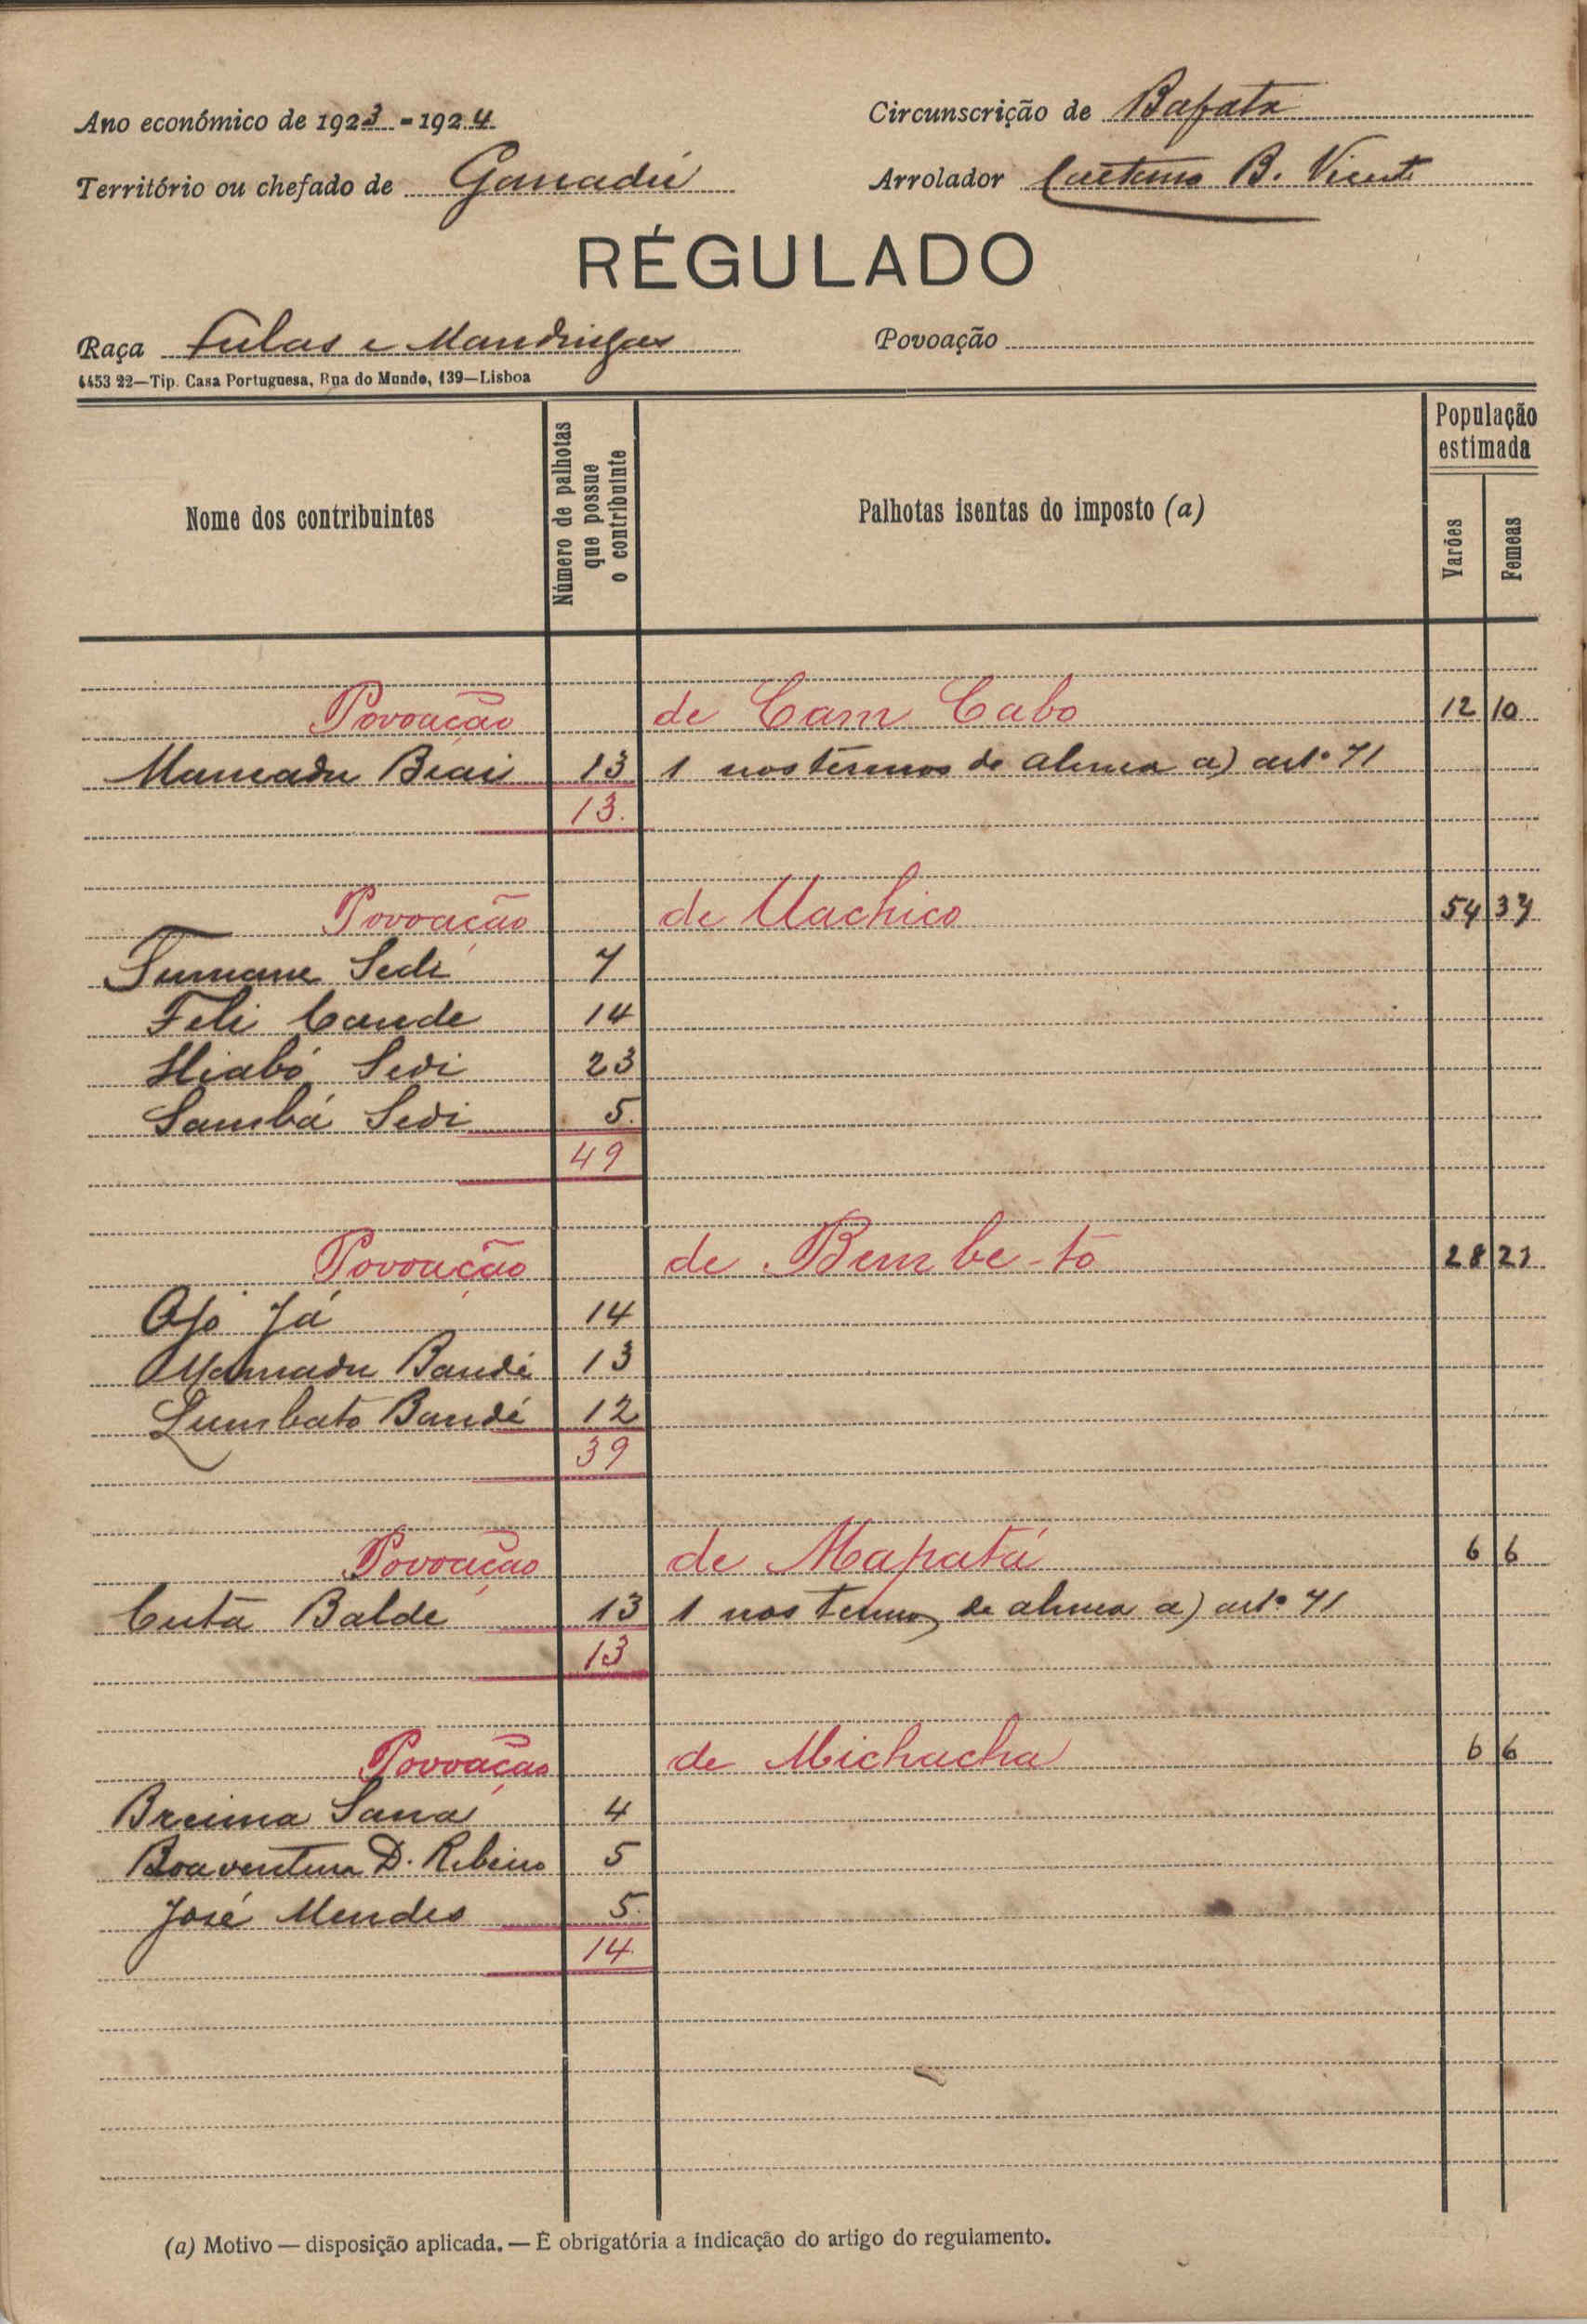 Ano económico de 1923-1924
Circunscrição de Bafata
Território ou chefado de Ganadú
Arrolador Caetano B. Vicente
RÉGULADO
Raça Fulas e Mandingas
Povoação
4453 22—Tip. Casa Portuguesa, Rua do Mundo, 139—Lisboa
Nome dos contribuintes
Número de palhotas que possue o contribuinte
Palhotas isentas do imposto (a)
População estimada
Varões
Femeas
Povoação de Cam Cabo 12 10
Mamadu Biai 13 1 nos termos de alinea a) artº 71
13.
Povoação de Uachico 54 37
Sedi 7
Feli Cande 14
Sedi 23
Sambá Sedi 5.
49
Povoação de Bembe-tó 28 21
Já 14
Mamadu Bandé 13
Lumbato Bandé 12
39
Povoação de Mapatá 6 6
Cutá Balde 13 1 nos termos de alinea a) artº 71
13
Povoação de Michacha 6 6
Breima Sana 4
Boaventura D. Ribeiro 5
José Mendes 5.
14.
(a) Motivo — disposição aplicada. — É obrigatória a indicação do artigo do regulamento.